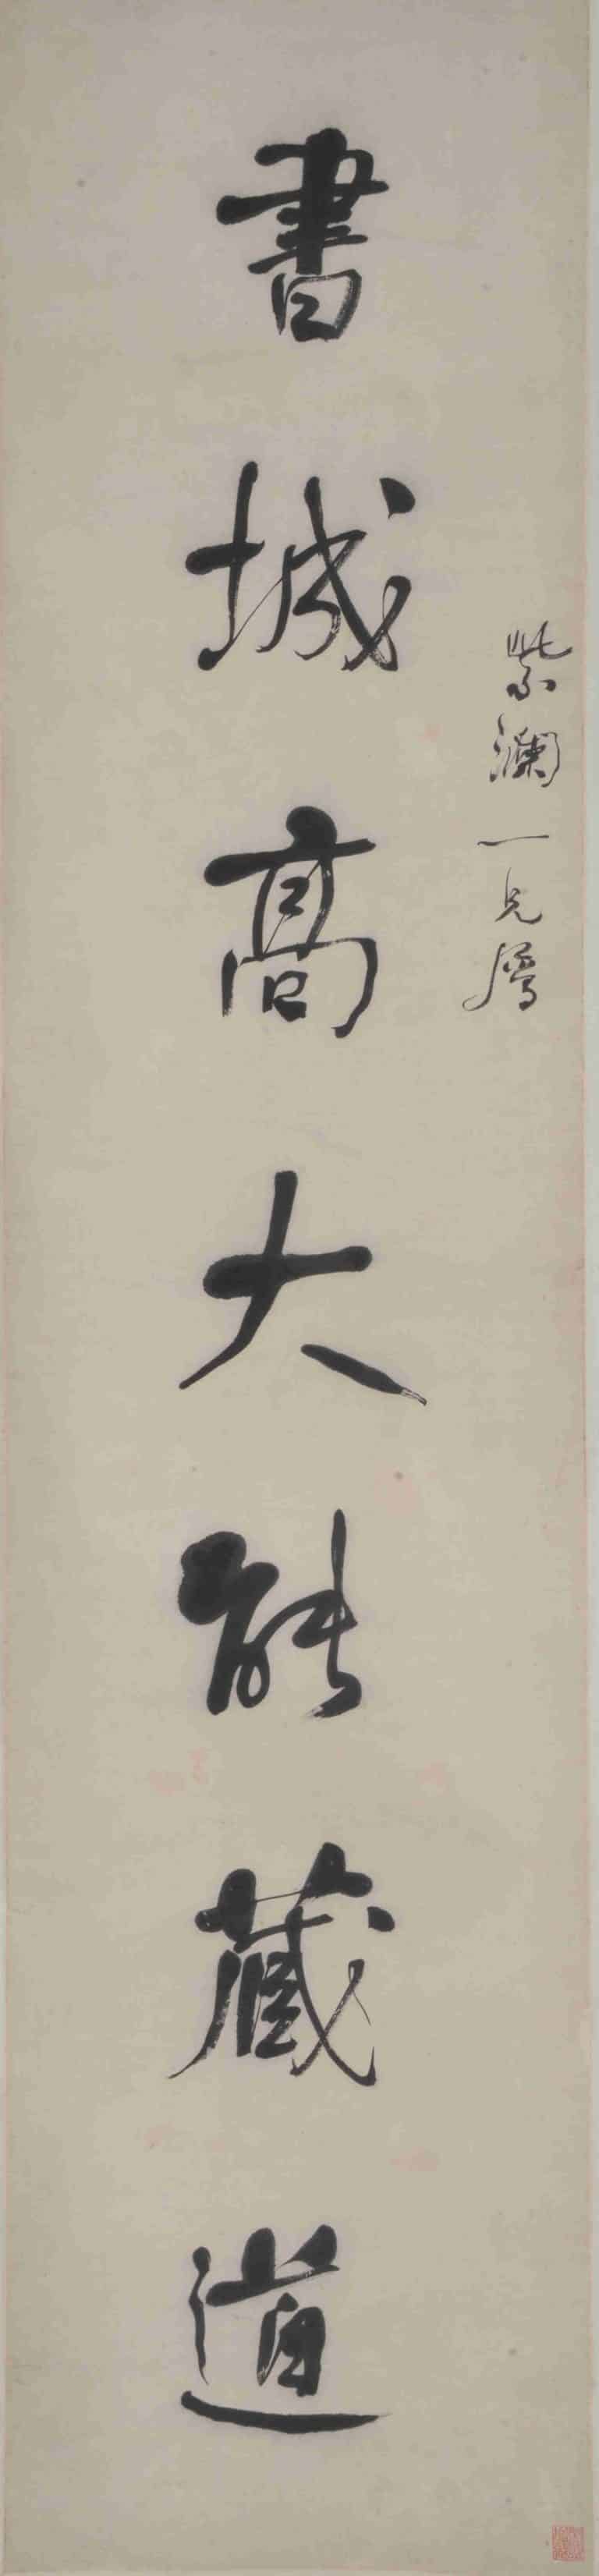 紫瀾一兄屬
書城高大能藏道